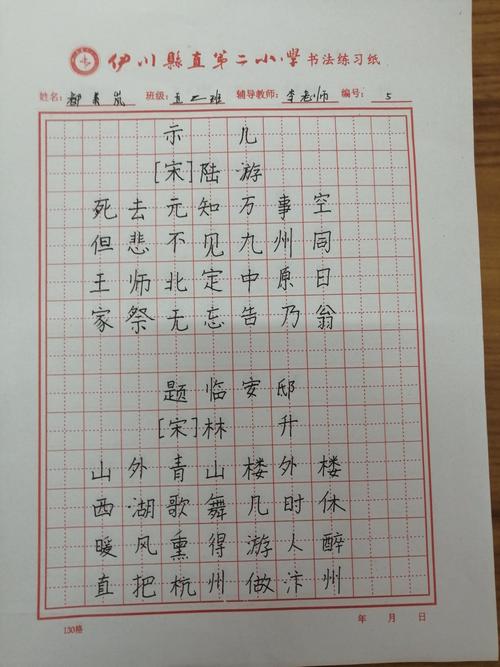 伊川縣直第二小学书法练习纸
姓名： 班级：五二班 辅导教师：李老师 编号：5
示 儿
[宋]陆 游
死去元知万事空
但悲不见九州同
王师北定中原日
家祭无忘告乃翁
题临安邸
[宋]林 升
山外青山楼外楼
西湖歌舞几时休
暖风熏得游人醉
直把杭州做汴州
130格
年 月 日